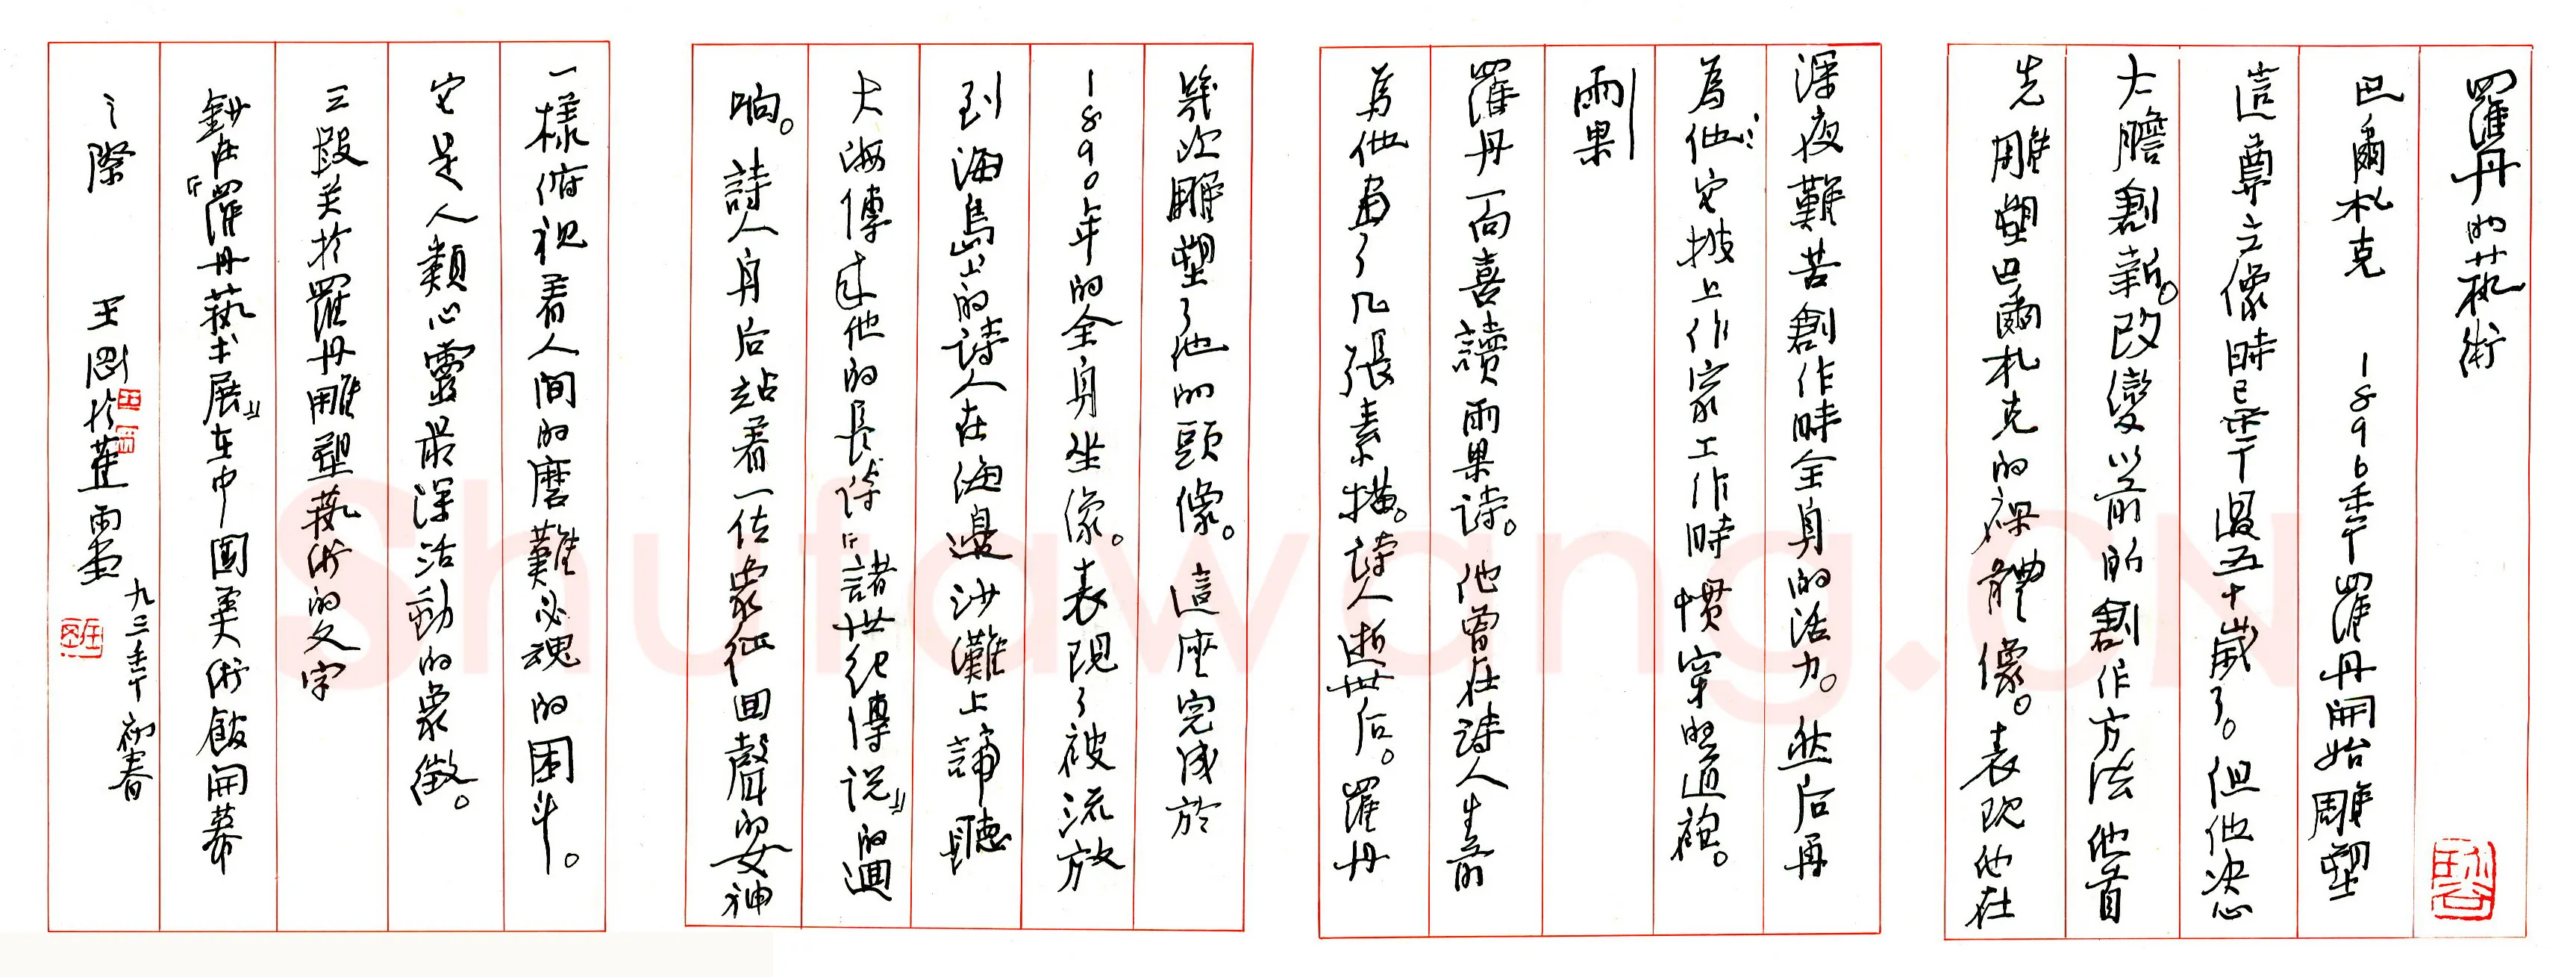 羅丹的藝術
巴爾札克 1896年羅丹開始雕塑
這尊立像時已年過五十歲了。但他決心
大膽創新。改變以前所創作方法他首
先雕塑巴爾札克的裸體像。表現他在
深夜艱苦創作時全身的活力。然后再
為他安披上作家工作時慣穿的道袍。
雨果
羅丹一向喜讀雨果詩。他曾在詩人生前
為他畫了几張素描。詩人逝世后。羅丹
幾次雕塑了他的頭像。這座完成於
1890年的全身坐像。表現了被流放
到海島的詩人在海邊沙灘上諦聽
大海傳來他的長詩「諸世紀傳说」的迴
响。詩人身后站着一位象征回聲的女神
一樣俯視着人間的磨難必魂的困斗。
它是人類心靈最深活動的象徵。
三段关於羅丹雕塑藝術的文字
鈔在「羅丹藝术展」在中國美術館開幕
之際 王 於 九三年初春
Shufawang.CN